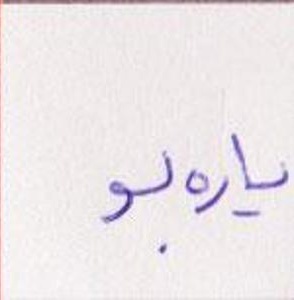 یاره بو